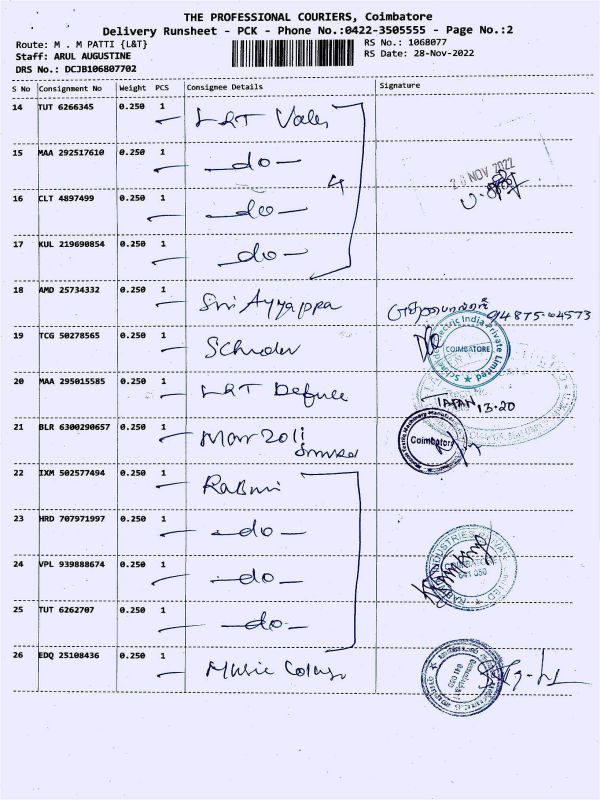 THE PROFESSIONAL COURIERS, Coimbatore
Delivery Runsheet - PCK - Phone No.:0422-3505555 - Page No.:2
Route: M . M PATTI {L&T}
RS No.: 1068077
Staff: ARUL AUGUSTINE
RS Date: 28-Nov-2022
DRS No.: DCJB106807702
S No Consignment No Weight PCS Consignee Details Signature
14 TUT 6266345 0.250 1 L&T Valves
15 MAA 292517610 0.250 1 -do-
28 NOV 2022
4
16 CLT 4897499 0.250 1 -do-
17 KUL 219690854 0.250 1 -do-
18 AMD 25734332 0.250 1 Sri Ayyappa
94875-04573
19 TCG 50278565 0.250 1 Schnider
Schneider Electric India Private Limited
COIMBATORE
20 MAA 295015585 0.250 1 L&T Defence
13.20
21 BLR 6300290657 0.250 1 Marzoli
Coimbatore
22 IXM 502577494 0.250 1 Rabmi
23 HRD 707971997 0.250 1 -do-
24 VPL 939888674 0.250 1 -do-
INDUSTRIES PRIVATE LIMITED
641 050
25 TUT 6262707 0.250 1 -do-
26 EDQ 25108436 0.250 1 Music College